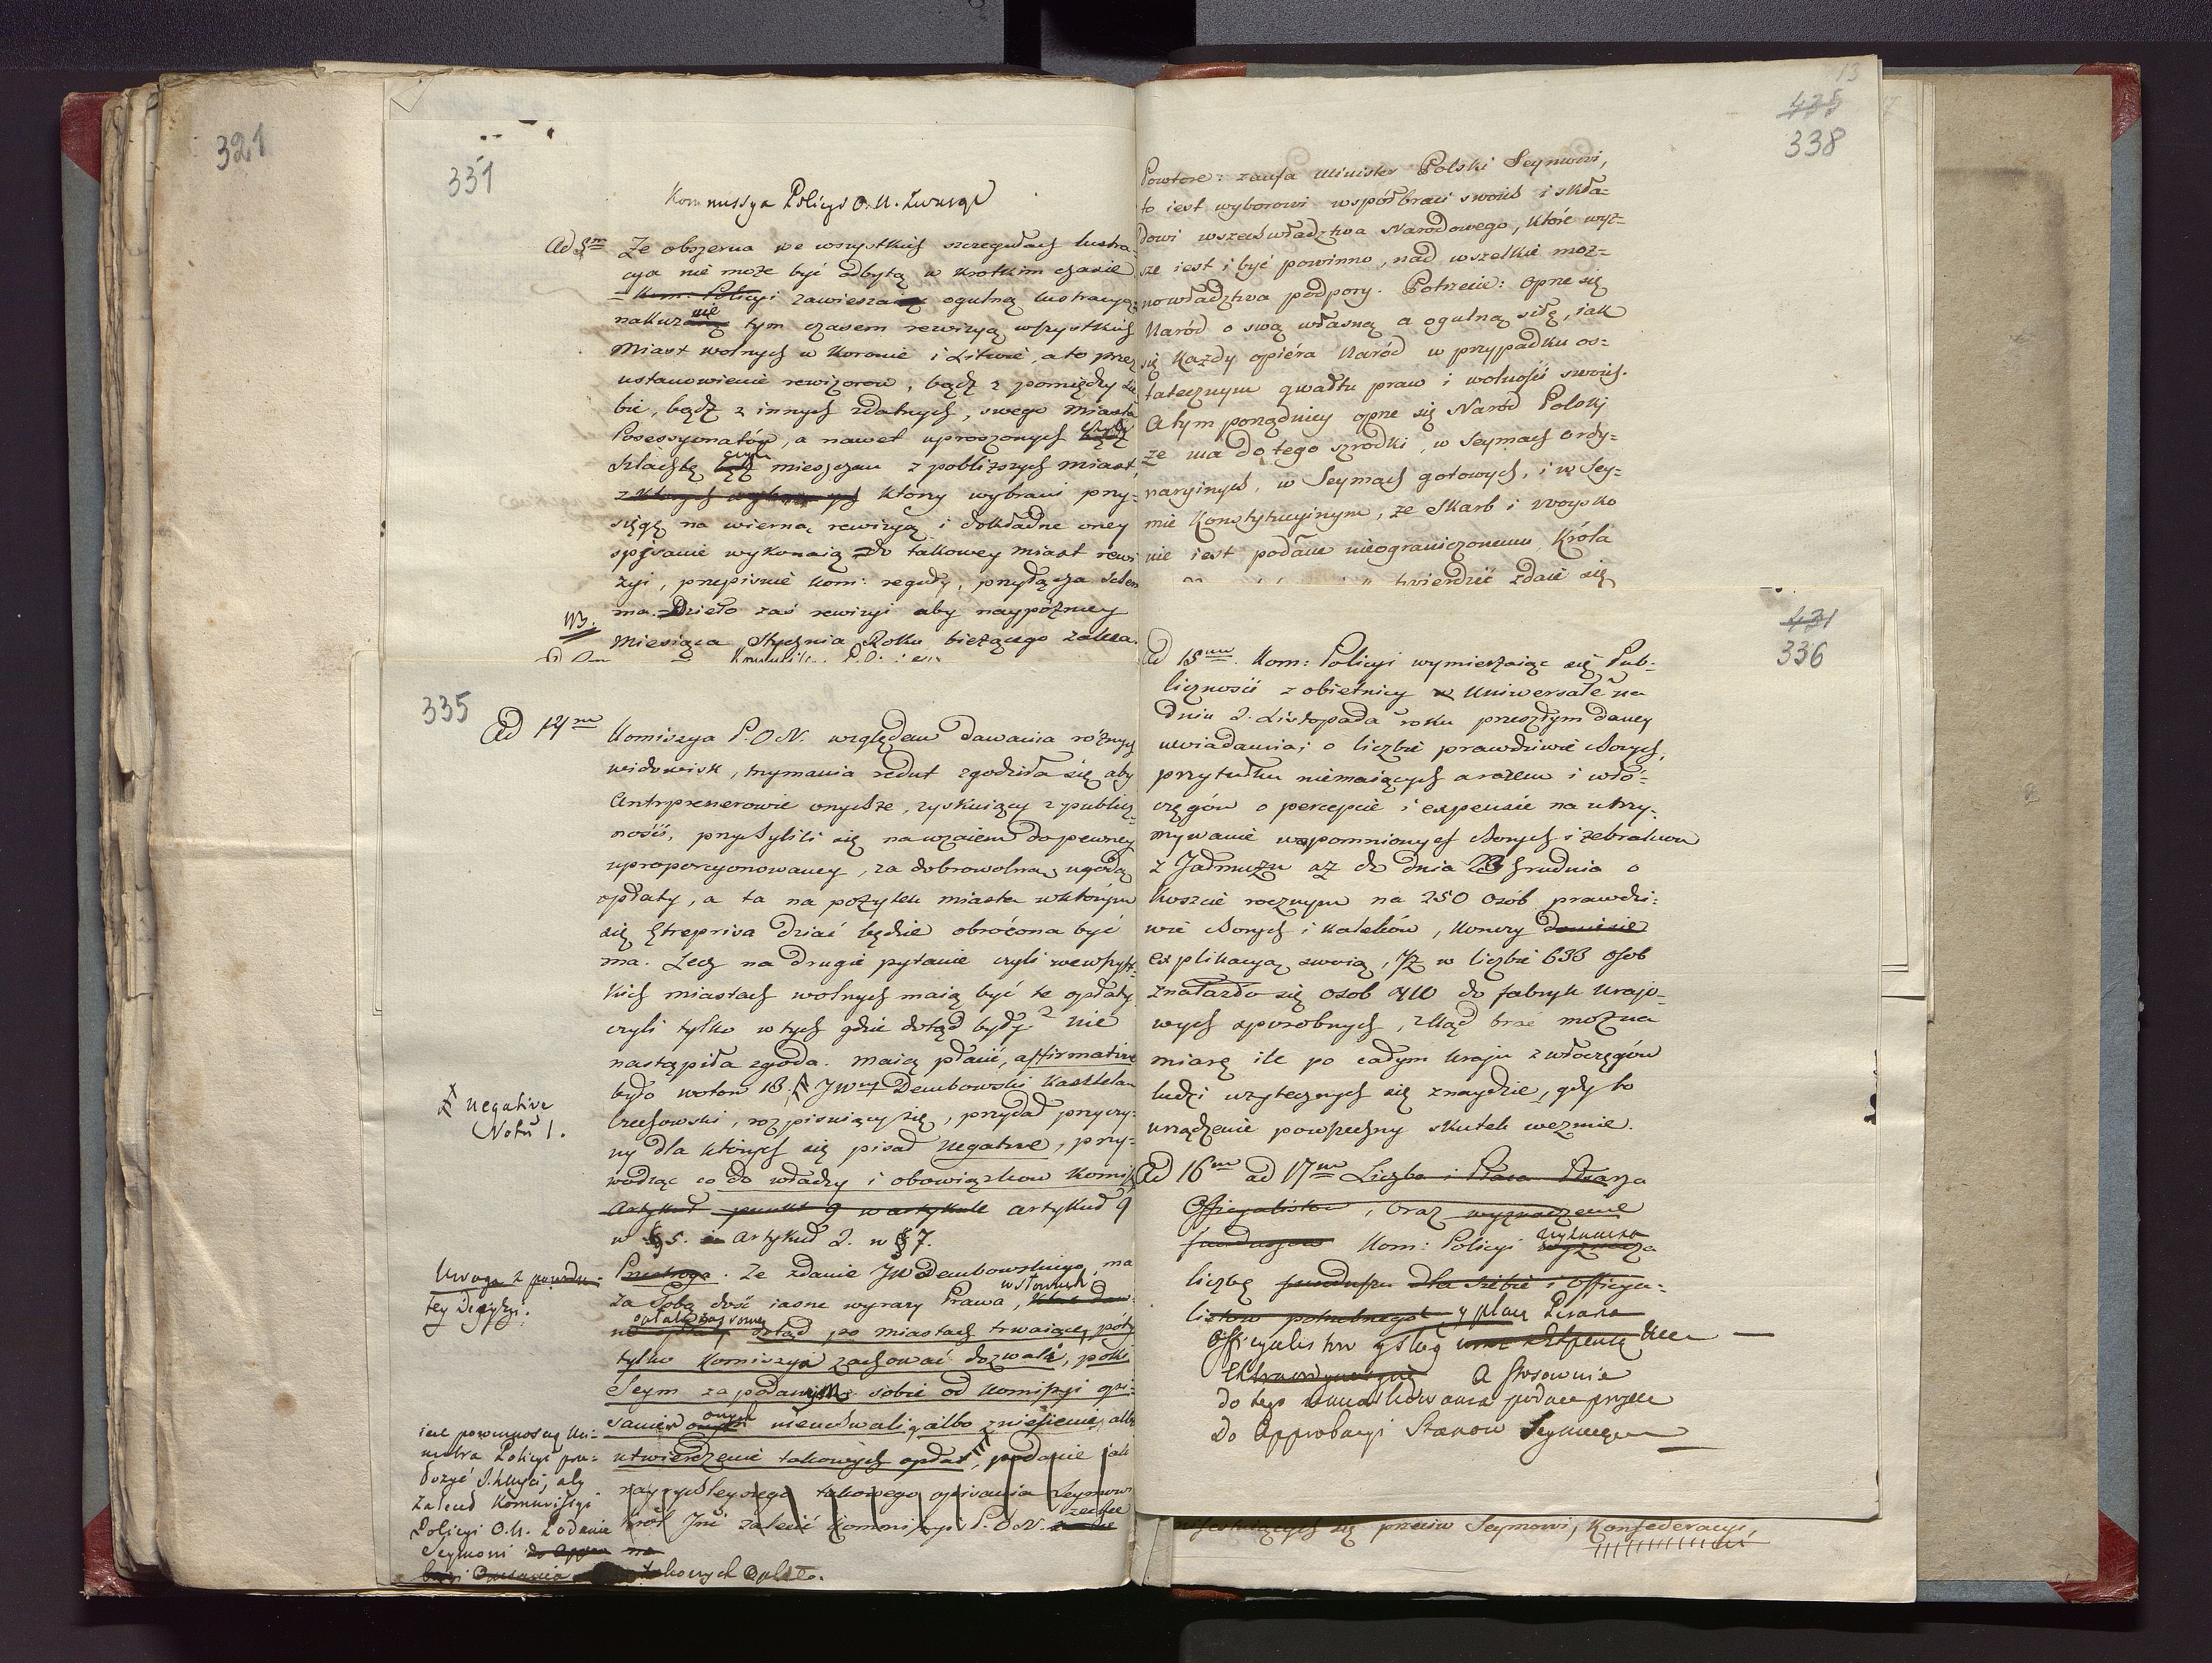 321
331
Kommissya Policyi O. N. zważając
Ad 3m Że obszerna we wszystkich szczegułach lustra=
cya nie może być odbytą w krotkim czasie
Kom: Policyi zawiesza ogulną lustracyą;
nakazuie tym czasem rewizyą wszystkich
Miast wolnych w Koronie i Litwie, a to przez
ustanowienie rewizorow, bądź z pomiędzy sie
bie, bądź z innych zdatnych, swego Miasta
Posessyonatów, a nawet uproszonych czyli
szlachtę czyli mieszczan z pobliższych miast,
z ktorych ktorzy wybrani przy=
sięgę na wierną rewizyą i dokładne oney
spisanie wykonaią do takowey miast rewi
zyi, przepisuie Kom: reguły, przyłącza schem
ma. Dzieło zaś rewizyi aby naypóźniey
NB.
Miesiąca Stycznia Roku bieżącego zaleca.
335
Ad 14m Komissya P. O. N. względem dawania różnych
widowisk, trzymania redut zgodziła się aby
Antrprenerowie onychże, zyskuiący z publicz=
ności, przychylili się nawzaiem do pewney
uproporcyonowaney, za dobrowolną ugodą
opłaty, a ta na pożytek miasta w którym
się Entrepriza dziać będzie obrócona być
ma. Lecz na drugie pytanie czyli we wszyst=
kich miastach wolnych maią być te opłaty
czyli tylko w tych gdzie dotąd były? nie
nastąpiła zgoda. maią płacić, affirmative
było wotow 13. # JWny Dembowski Kasztelan
# negative
Votū 1.
Czechowski, rozpisuiący się, przydał przyczy=
ny dla których się pisał negative, przy=
wodząc co do władzy i obowiązkow Komiss:
Artykuł punkt 9 w artykule artykuł 9
w § 5. artykuł 2. w § 7.
Uwaga z powodu
tey Decyzyi.
Przestroga. Że zdanie JW Dembowskiego, ma
za sobą dość iasne wyrazy Prawa, w słowach
dotąd po miastach trwaiącey, póty
tylko Komissyia zachować dozwala, póki
Seym za podanym sobie od Komissyi opi=
saniem onych nieuchwali, albo zniesienie, albo
utwierdzenie takowych opłat, podanie iak
nayrychleyszego takowego opisania Seymowi
Król Jmć zalecić Kommissyi P. O. N. zechce
iest powinnością Mi=
nistra Policyi prze=
łożyć Straży, aby
zalecił Kommissyi
Policyi O. N. Podanie
Seymowi do na
Opisania takowych Opłat.
13
435
338
Powtore: zaufa Minister Polski Seymowi,
to iest wyborowi współbraci swoich i skła=
dowi wszechwładztwa Narodowego, które wyż=
sze iest i być powinno, nad wszelkie moż=
nowładztwa podpory. Potrzecie: oprze się
Naród o swą własną a ogulną siłę, iak
się każdy opiéra Naród w przypadku os=
tatecznym gwałtu praw i wolności swoich.
A tym porządniey oprze się Naród Polski
że ma do tego szrodki, w Seymach ordy=
naryinych, w Seymach gotowych, i w Sey=
mie Konstytucyinym, że Skarb i woysko
nie iest podane nieograniczonemu Króla
twierdzić zdaie się
431
336
Ad 15um. Kom: Policyi wymieszaiąc się Pub=
liczności z obietnicy w Uniwersale na
dniu 2. Listopada roku przeszłym daney
uwiadamia; o liczbie prawdziwie chorych,
przytułku niemaiących a razem i włó=
częgów o percepcie i expensie na utrzy=
mywanie wspomnionych chorych i żebraków
z Jałmużn aż do dnia 23 Grudnia o
koszcie rocznym na 250 osób prawdzi=
wie chorych i kalekow, konczy
explikacyą swoią, iż w liczbie 633 osob
znalazło się osob 410 do fabryk krajo=
wych sposobnych, zkąd brać można
miarę ile po całym kraju z włoczęgów
ludzi użytecznych się znaydzie, gdy to
urządzenie powszechny skutek weźmie.
Ad 16m ad 17m Liczba i Płaca Pisarza
Officyalistow, oraz wyznaczenie
funduszow Kom: Policyi wyznacza
liczbę funduszu dla siebie i Officya=
listow potrzebnego y płacę Pisarza
Officyalistow y sług
Extraordynaryinę A stosownie
do tego podane proiekt
do Approbacyi Stanow Seymuiących
się przeciw Seymowi, Konfederacyi,